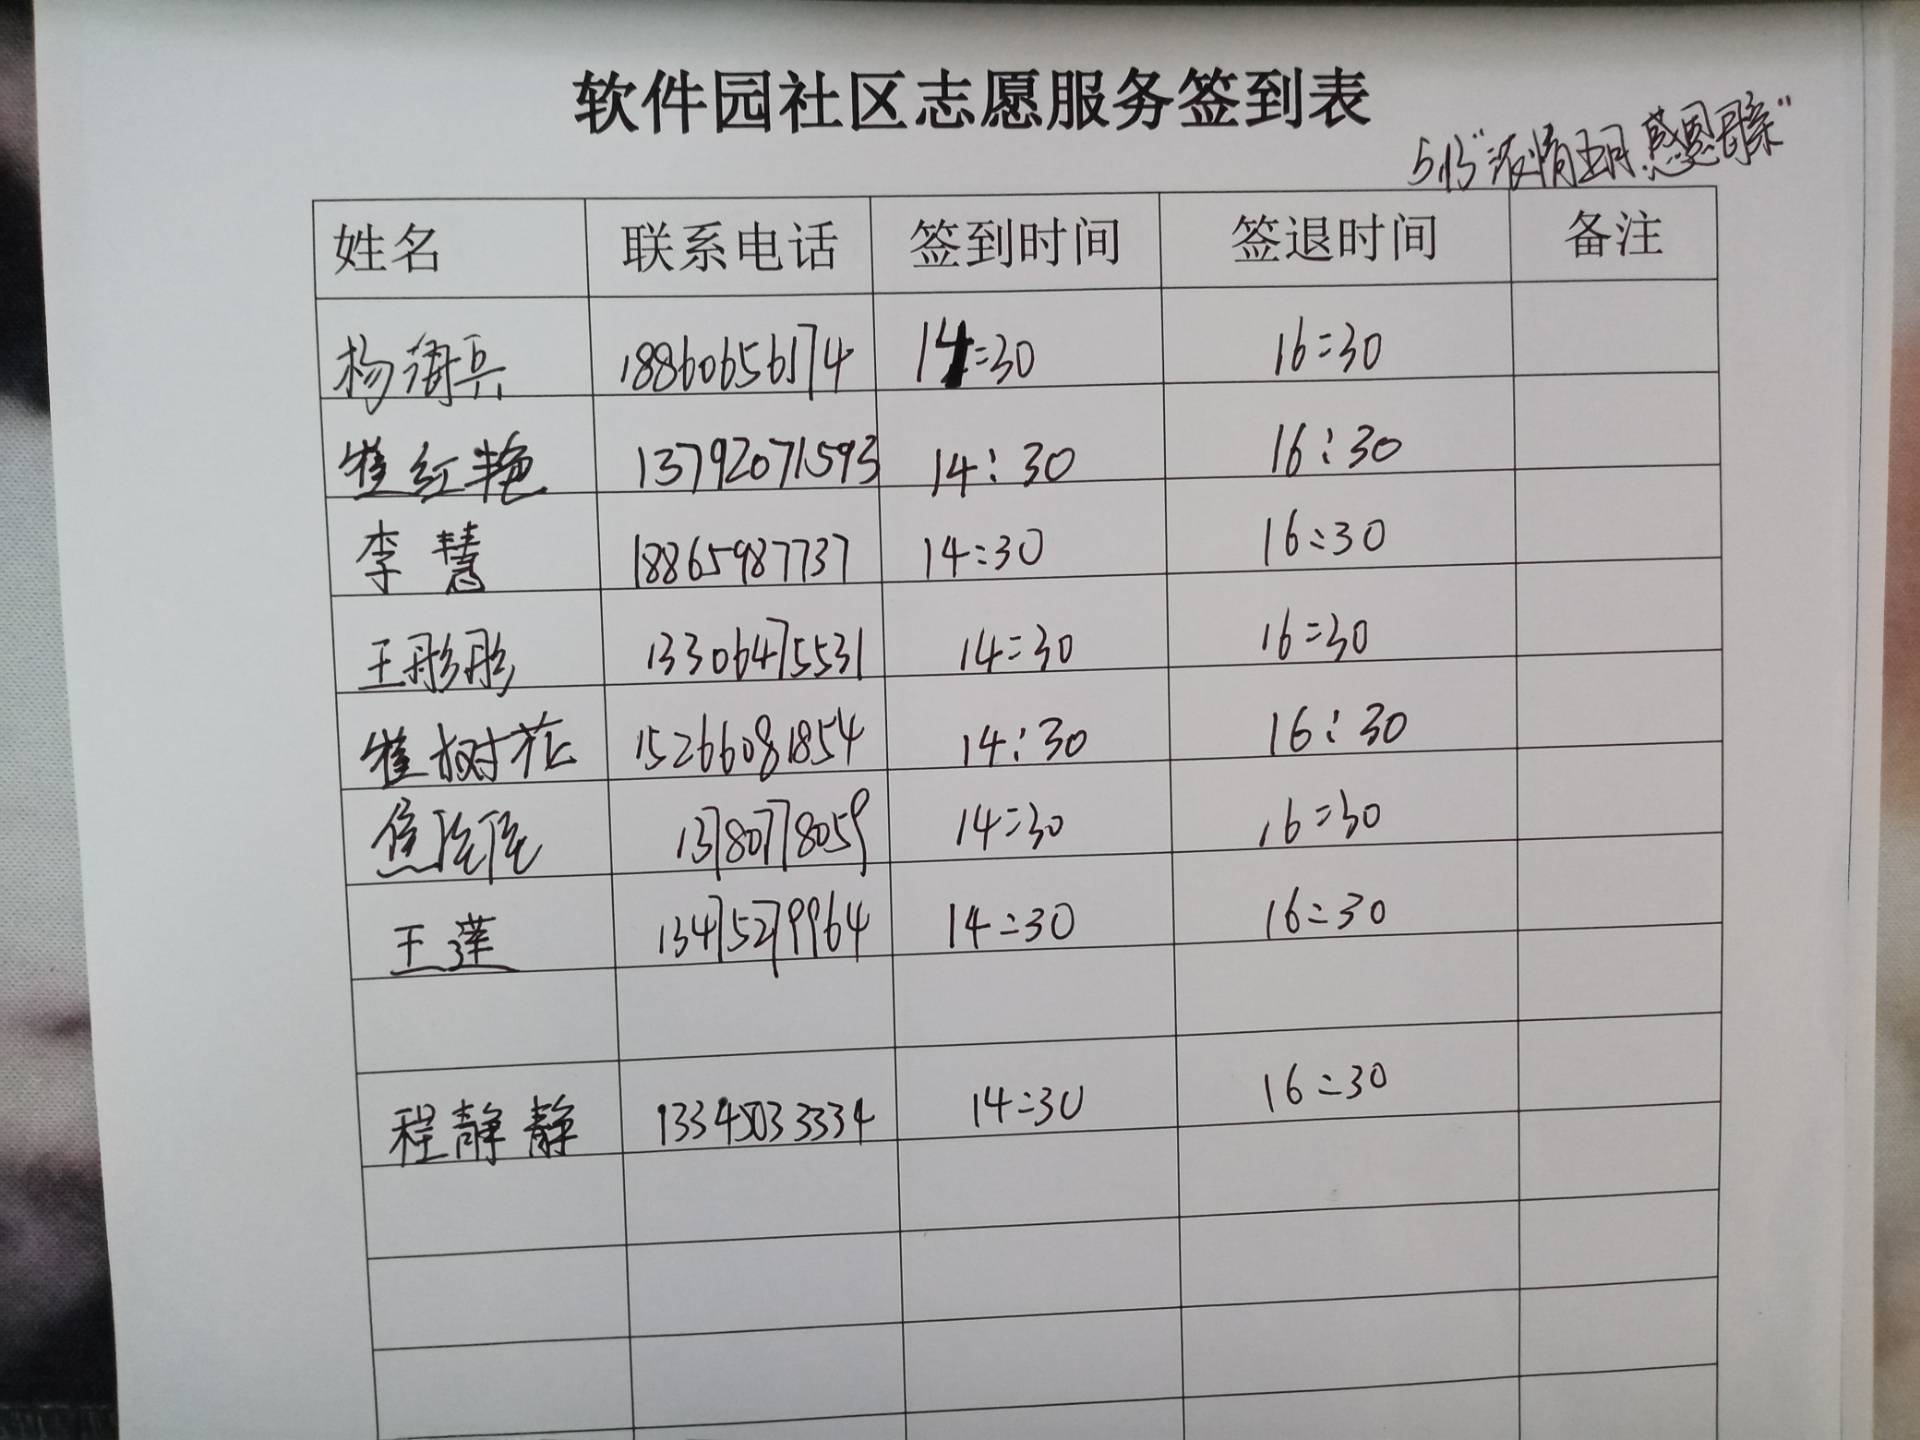 软件园社区志愿服务签到表
5.13"浓情五月.感恩母亲"
姓名 联系电话 签到时间 签退时间 备注
杨 兵 18860656174 14:30 16:30
崔红艳 13792071593 14:30 16:30
李慧 18865987737 14:30 16:30
王彤彤 13306475531 14:30 16:30
崔树花 15266081854 14:30 16:30
焦 13780778059 14:30 16:30
王莲 13475279964 14:30 16:30
程静静 14:30 16:30